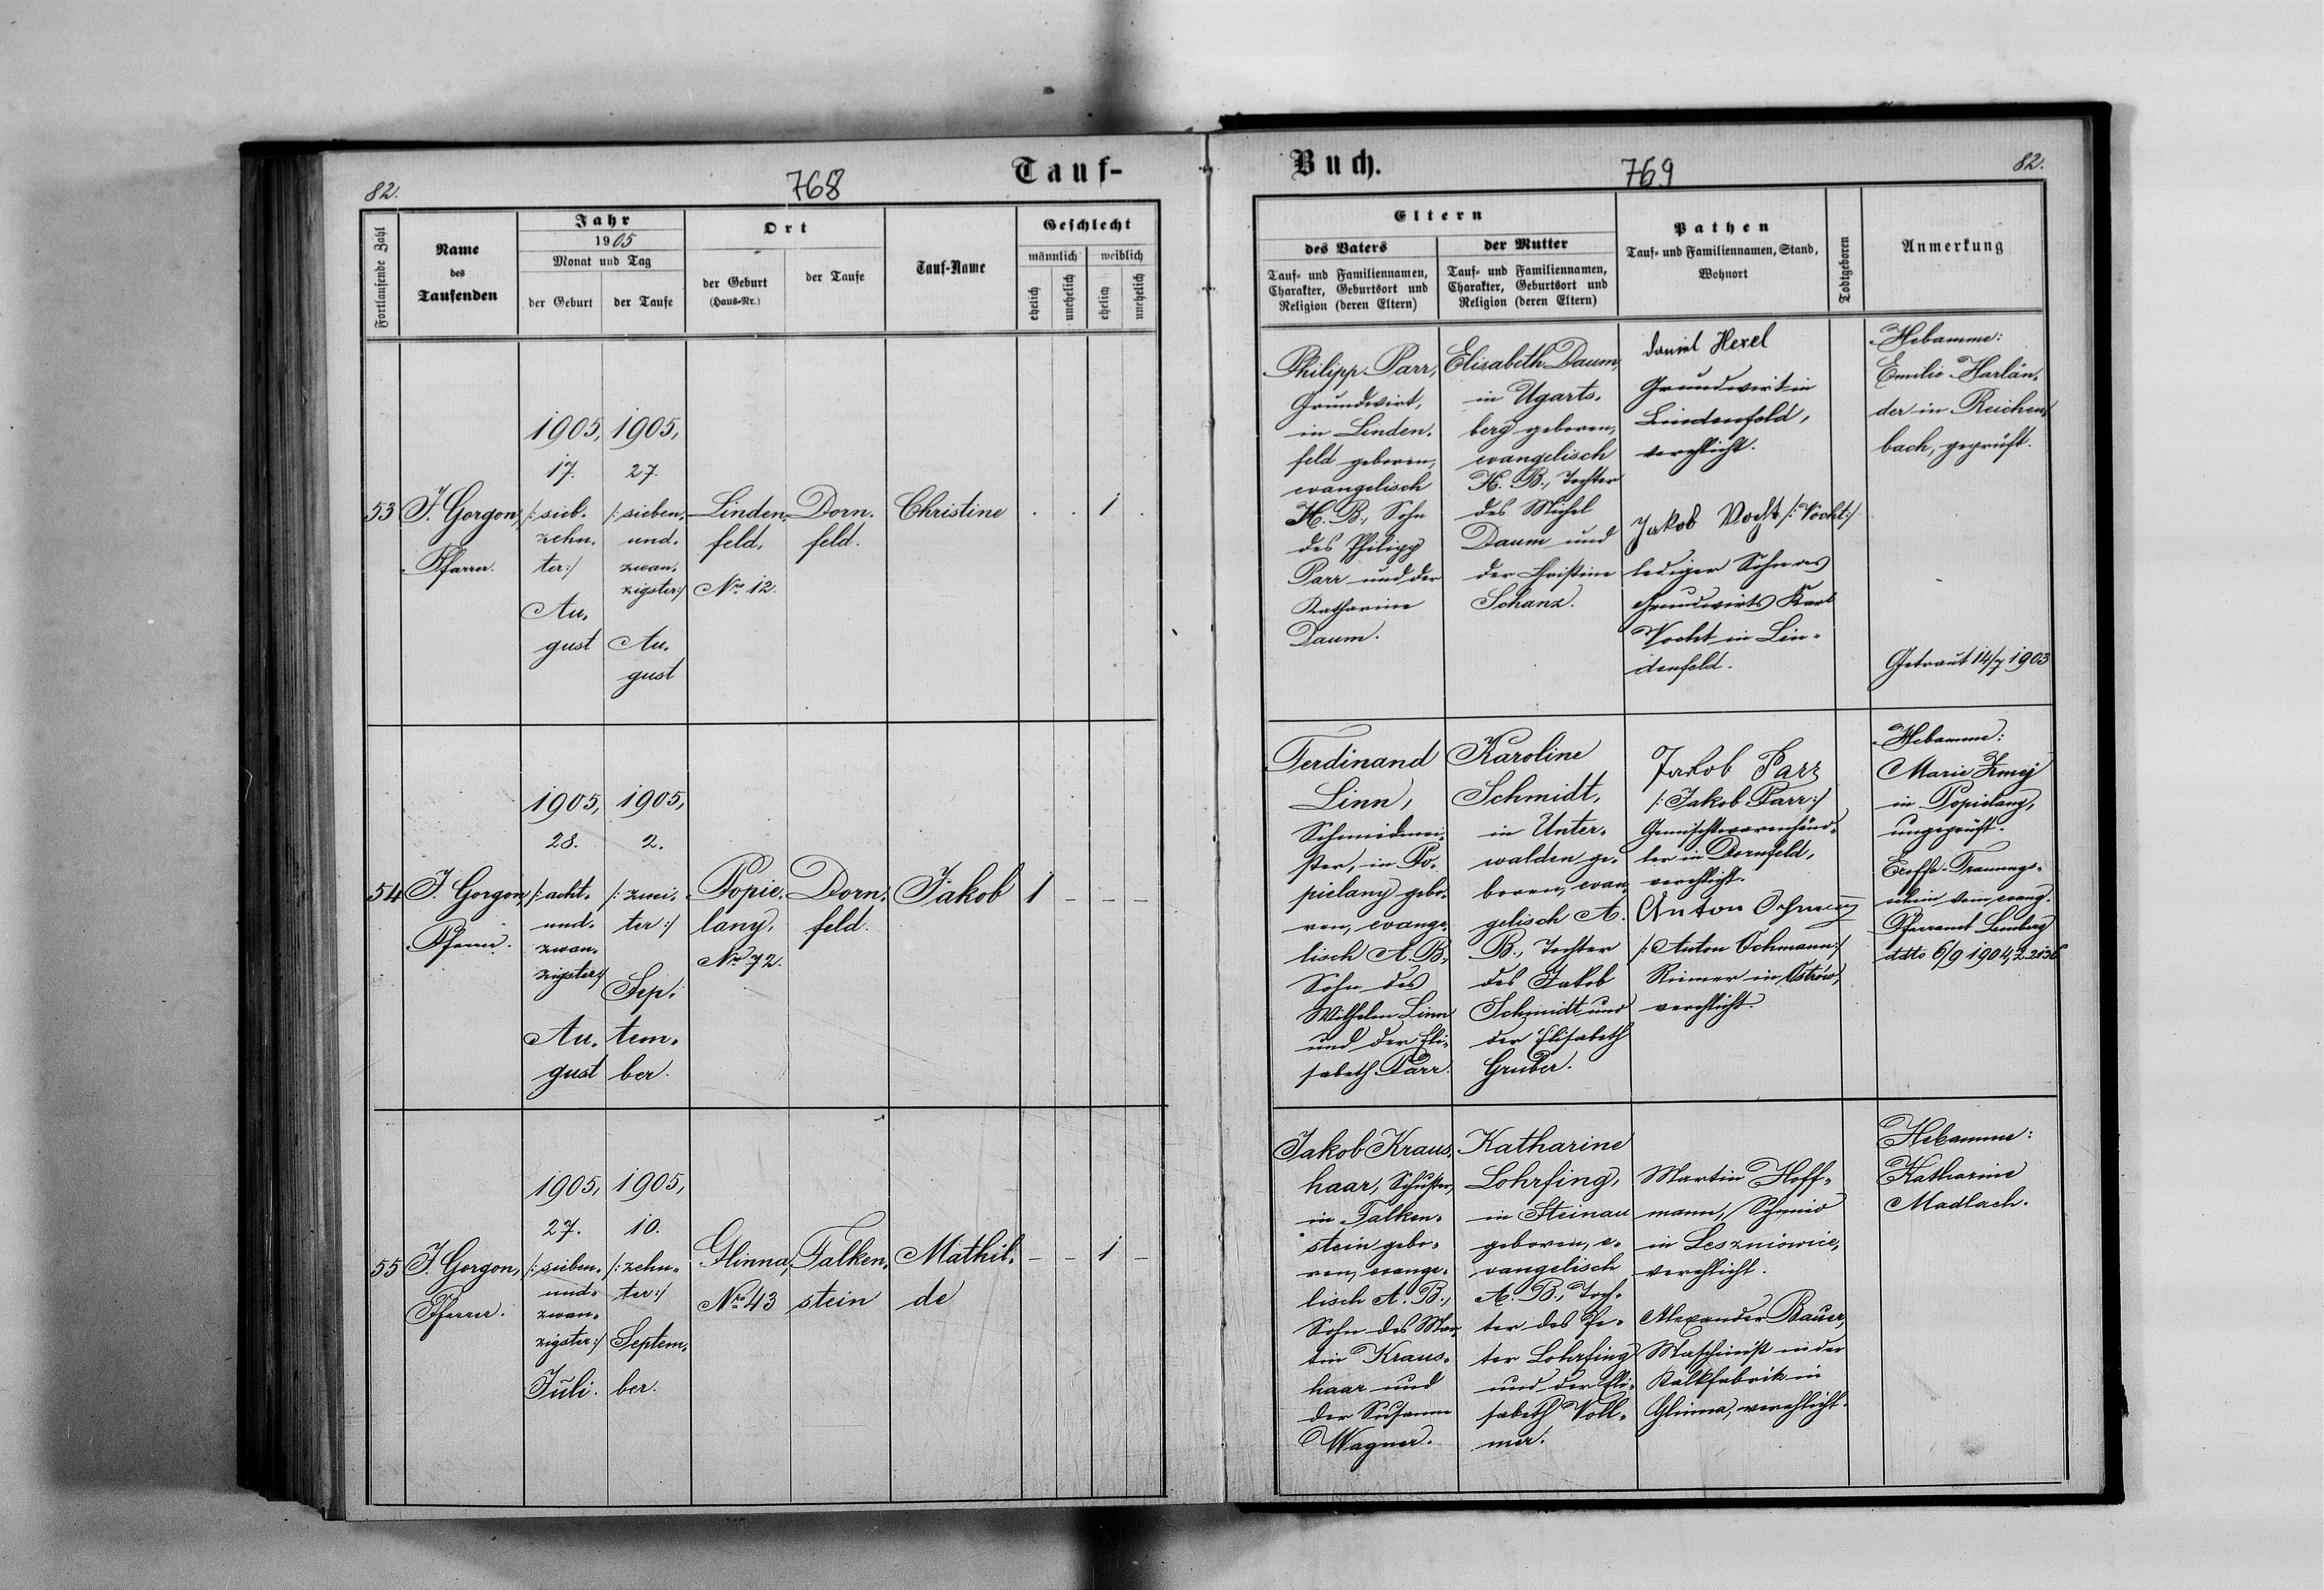 82.
768
Tauf-
Fortlaufende Zahl
Name
des
Taufenden
Jahr
1905
Monat und Tag
der Geburt
der Taufe
Ort
der Geburt
(Haus-Nr.)
der Taufe
Tauf-Name
Geschlecht
männlich
weiblich
ehelich
unehelich
ehelich
unehelich
53
J. Gorgon,
Pfarrer.
1905,
17.
/:sieb-
zehn-
ter:/
Au-
gust
1905,
27.
/:sieben-
und-
zwan-
zigster:/
Au-
gust
Linden-
feld,
Nro 12.
Dorn-
feld.
Christine
. . 1 .
54
J. Gorgon,
Pfarrer.
1905,
28.
/:acht-
und-
zwan-
zigster:/
Au-
gust
1905,
2.
/:zwei-
ter:/
Sep-
tem-
ber.
Popie-
lany,
Nro 72.
Dorn-
feld.
Jakob
1 - - -
55
J. Gorgon,
Pfarrer.
1905,
27.
/:sieben-
und-
zwan-
zigster:/
Juli.
1905,
10.
/:zehn-
ter:/
Septem-
ber.
Glinna,
Nro 43
Falken-
stein
Mathil-
de
- - 1 -
Buch.
769
82.
Eltern
des Vaters
Tauf- und Familiennamen,
Charakter, Geburtsort und
Religion (deren Eltern)
der Mutter
Tauf- und Familiennamen,
Charakter, Geburtsort und
Religion (deren Eltern)
Pathen
Tauf- und Familiennamen, Stand,
Wohnort
Todtgeboren
Anmerkung
Philipp Parr,
Grundwirt,
in Linden-
feld geboren,
evangelisch
H. B., Sohn
des Philipp
Parr und der
Katharine
Daum.
Elisabeth Daum,
in Ugarts-
berg geboren,
evangelisch
H. B., Tochter
des Michel
Daum und
der Christine
Schanz.
Daniel Hexel
Grundwirt in
Lindenfeld,
verehlicht.
Jakob Vocht /:Vocht:/
lediger Sohn des
Grundwirts Karl
Vocht in Lin-
denfeld.
Hebamme:
Emilie Harlän-
der in Reichen-
bach, geprüft.
Getraut 14/7 1903
Ferdinand
Linn,
Schmiedmei-
ster, in Po-
pielany gebo-
ren, evange-
lisch A. B.,
Sohn des
Wilhelm Linn
und der Eli-
sabeth Parr.
Karoline
Schmidt,
in Unter-
walden ge-
boren, evan-
gelisch A.
B., Tochter
des Jakob
Schmidt und
der Elisabeth
Gruber.
Jakob Parr
/:Jakob Parr:/
Gemischtwarenhänd-
ler in Dornfeld,
verehlicht.
Anton
/:Anton Ochmann:/
Riemer in Ostrów,
verehlicht.
Hebamme:
Marie Zmij
in Popielany,
ungeprüft.
Trauungs-
schein vom evang.
Pfarramt Lemberg
ddto 6/9 1904, Z.
Jakob Kraus-
haar, Schuster,
in Falken-
stein gebo-
ren, evange-
lisch A. B.,
Sohn des Mar-
tin Kraus-
haar und
der Susanne
Wagner.
Katharine
Lohrfing,
in Steinau
geboren, e-
vangelisch
A. B., Toch-
ter des Pe-
ter Lohrfing
und der Eli-
sabeth Voll-
mer.
Martin Hoff-
mann, Schmied
in Leszniowice,
verehlicht.
Alexander Bauer,
Maschinist in der
Kalkfabrik in
Glinna, verehlicht.
Hebamme:
Katharine
Madlach.